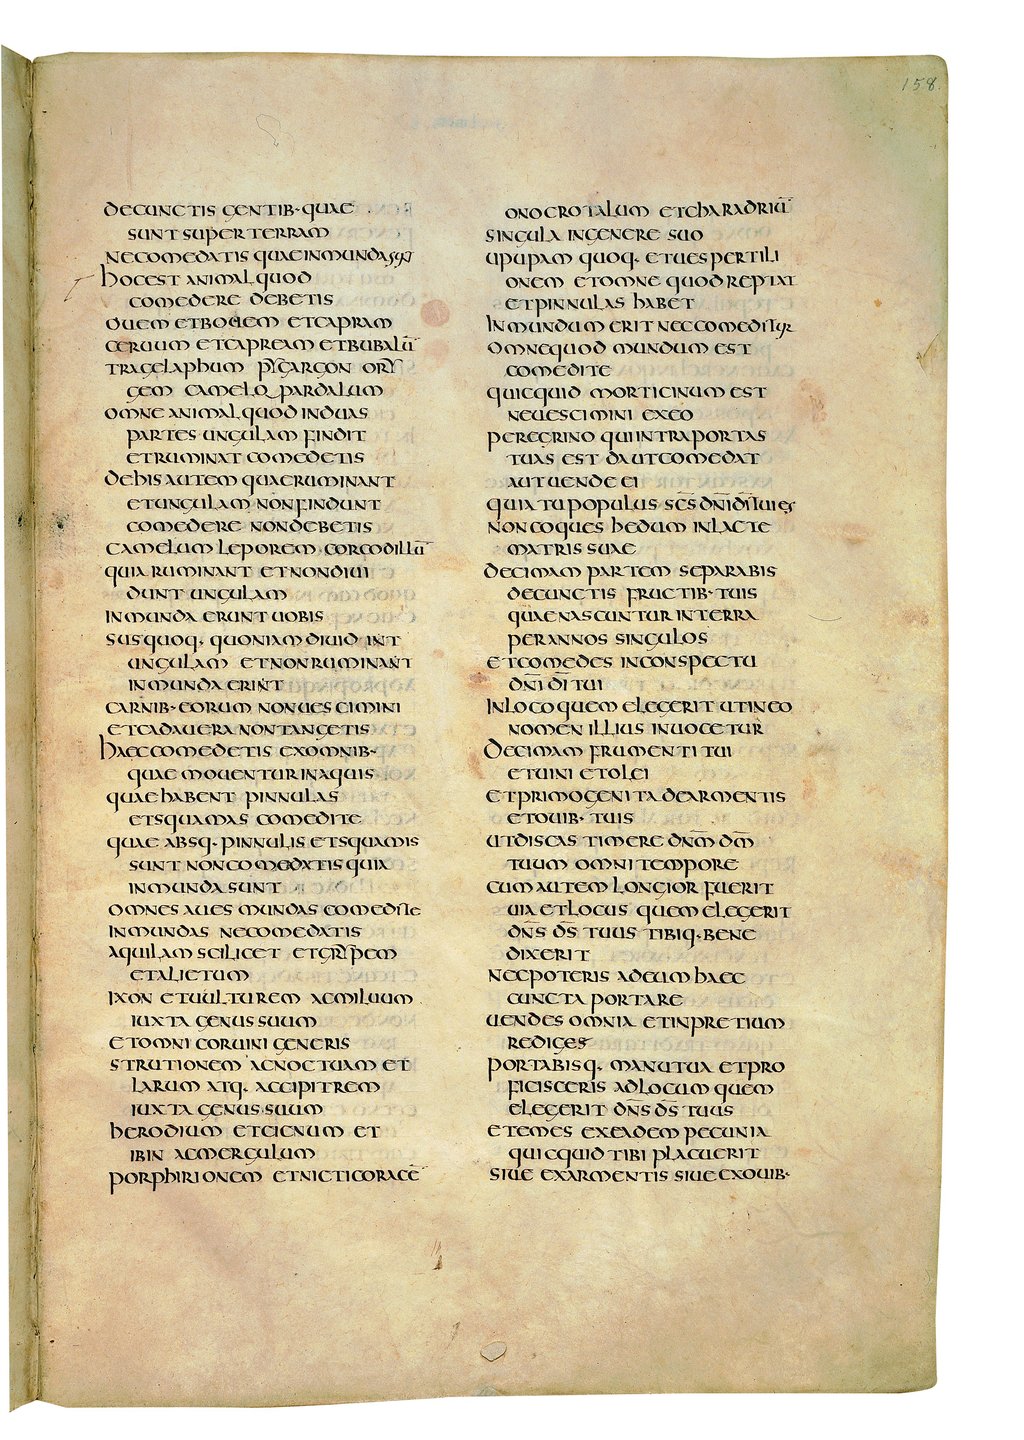 158
DE CUNCTIS GENTIB· QUAE
SUNT SUPER TERRAM
NE COMEDATIS QUAE INMUNDA SUNT
HOC EST ANIMAL QUOD
COMEDERE DEBETIS
OUEM ET BOUEM ET CAPRAM
CERUUM ET CAPREAM ET BUBALŪ
TRAGELAPHUM PYGARGON ORY
GEM CAMELOPARDALUM
OMNE ANIMAL QUOD IN DUAS
PARTES UNGULAM FINDIT
ET RUMINAT COMEDETIS
DE HIS AUTEM QUAE RUMINANT
ET UNGULAM NON FINDUNT
COMEDERE NON DEBETIS
CAMELUM LEPOREM CORCODILLŪ
QUIA RUMINANT ET NON DIUI
DUNT UNGULAM
INMUNDA ERUNT UOBIS
SUS QUOQ· QUONIAM DIUIDINT
UNGULAM ET NON RUMINANT
INMUNDA ERINT
CARNIB· EORUM NON UESCIMINI
ET CADAUERA NON TANGETIS
HAEC COMEDETIS EX OMNIB·
QUAE MOUENTUR IN AQUIS
QUAE HABENT PINNULAS
ET SQUAMAS COMEDITE
QUAE ABSQ· PINNULIS ET SQUAMIS
SUNT NON COMEDATIS QUIA
INMUNDA SUNT
OMNES AUES MUNDAS COMEDITE
INMUNDAS NE COMEDATIS
AQUILAM SCILICET ET GRYPEM
ET ALIETUM
IXON ET UULTUREM AC MILUUM
IUXTA GENUS SUUM
ET OMNI CORUINI GENERIS
STRUTIONEM AC NOCTUAM ET
LARUM ATQ· ACCIPITREM
IUXTA GENUS SUUM
HERODIUM ET CICNUM ET
IBIN AC MERGULUM
PORPHIRIONEM ET NICTICORACĒ
ONOCROTALUM ET CHARADRIŪ
SINGULA IN GENERE SUO
UPUPAM QUOQ· ET UESPERTILI
ONEM ET OMNE QUOD REPTAT
ET PINNULAS HABET
INMUNDUM ERIT NEC COMEDITUR
OMNE QUOD MUNDUM EST
COMEDITE
QUICQUID MORTICINUM EST
NE UESCIMINI EX EO
PEREGRINO QUI INTRA PORTAS
TUAS EST DA UT COMEDAT
AUT UENDE EI
QUIA TU POPULUS SC̄S DN̄I DĪ TUI ES
NON COQUES HEDUM IN LACTE
MATRIS SUAE
DECIMAM PARTEM SEPARABIS
DE CUNCTIS FRUCTIB· TUIS
QUAE NASCUNTUR IN TERRA
PER ANNOS SINGULOS
ET COMEDES IN CONSPECTU
DN̄I DĪ TUI
IN LOCO QUEM ELEGERIT UT IN EO
NOMEN ILLIUS INUOCETUR
DECIMAM FRUMENTI TUI
ET UINI ET OLEI
ET PRIMOGENITA DE ARMENTIS
ET OUIB· TUIS
UT DISCAS TIMERE DN̄M DM̄
TUUM OMNI TEMPORE
CUM AUTEM LONGIOR FUERIT
UIA ET LOCUS QUEM ELEGERIT
DN̄S DS̄ TUUS TIBIQ· BENE
DIXERIT
NEC POTERIS AD EUM HAEC
CUNCTA PORTARE
UENDES OMNIA ET IN PRETIUM
REDIGES
PORTABISQ· MANU TUA ET PRO
FICISCERIS AD LOCUM QUEM
ELEGERIT DN̄S DS̄ TUUS
ET EMES EX EADEM PECUNIA
QUICQUID TIBI PLACUERIT
SIUE EX ARMENTIS SIUE EX OUIB·